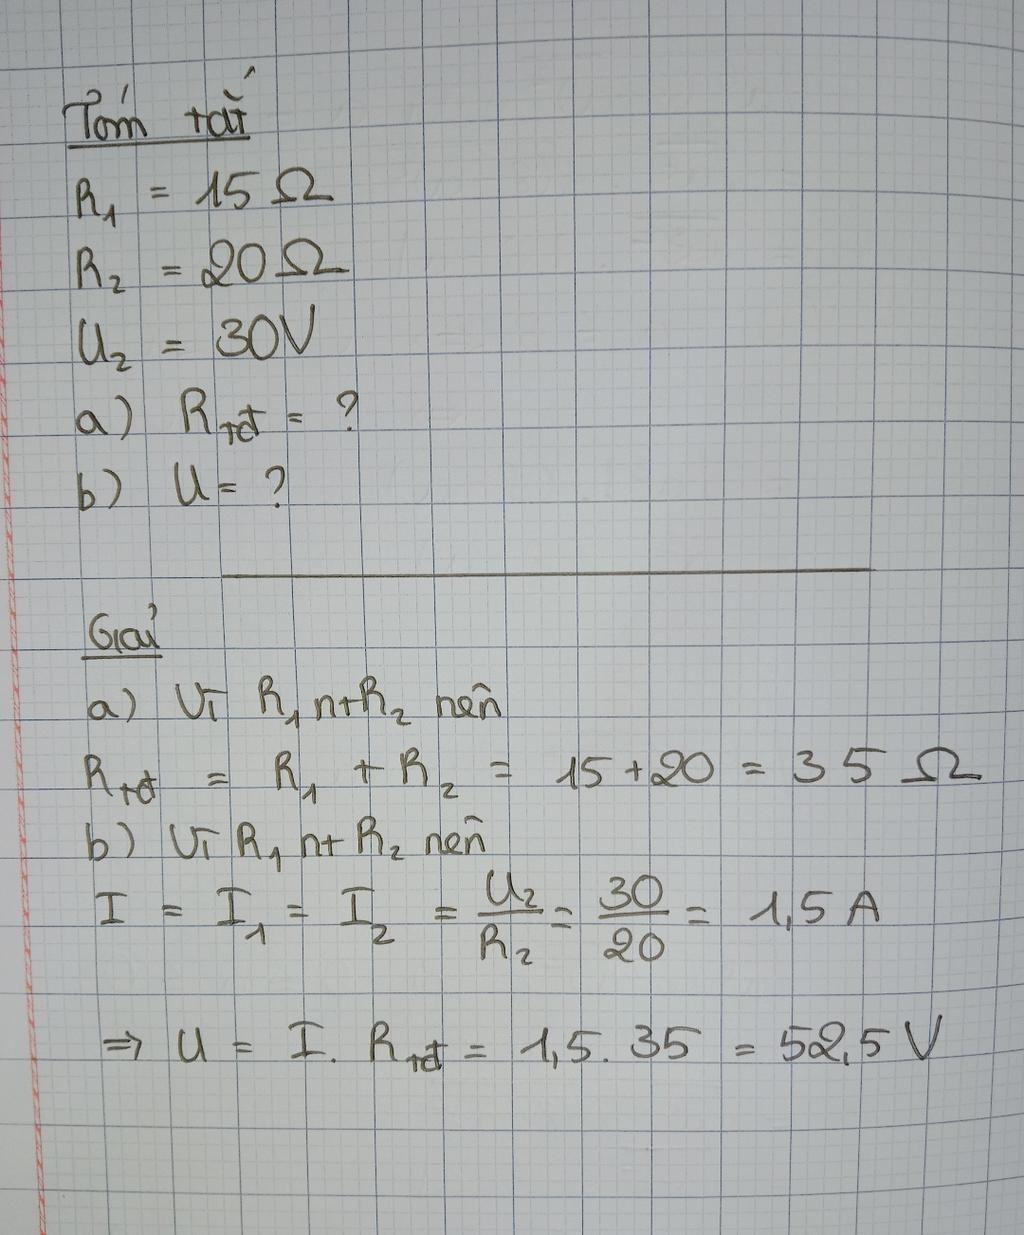 Tóm tắt
R₁ = 15 Ω
R₂ = 20 Ω
U₂ = 30V
a) Rtđ = ?
b) U = ?
Giải
a) Vì R₁ nt R₂ nên
Rtđ = R₁ + R₂ = 15 + 20 = 35 Ω
b) Vì R₁ nt R₂ nên
I = I₁ = I₂ = U₂/R₂ = 30/20 = 1,5 A
⇒ U = I. Rtđ = 1,5. 35 = 52,5 V